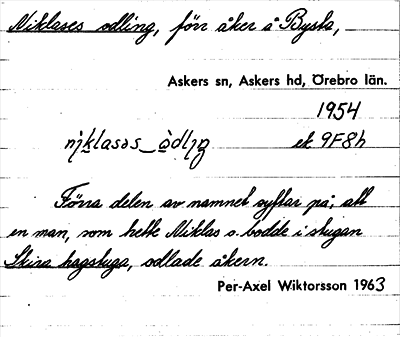 Niklases odling, förr åker å Bysta,
Askers sn, Askers hd, Örebro län.
1954
nìklasəs_òdlıŋ ek 9F8h
Förra delen av namnet syftar på, att
en man, som hette Niklas o. bodde i stugan
Skira hagstuga, odlade åkern.
Per-Axel Wiktorsson 1963